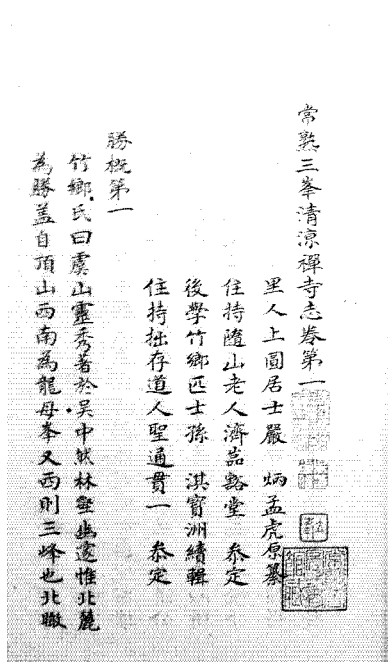 常熟三峯清涼禪寺志卷第一
里人上圓居士嚴 炳孟虎原纂
住持隨山老人濟嵓豁堂 叅定
後學竹鄉匹士孫 淇寶洲續輯
住持拙存道人聖通貫一 叅定
勝概第一
竹鄉氏曰虞山靈秀著於吳中然林壑幽邃惟北麓
為勝蓋自頂山西南為龍母峯又西則三峰也北瞰